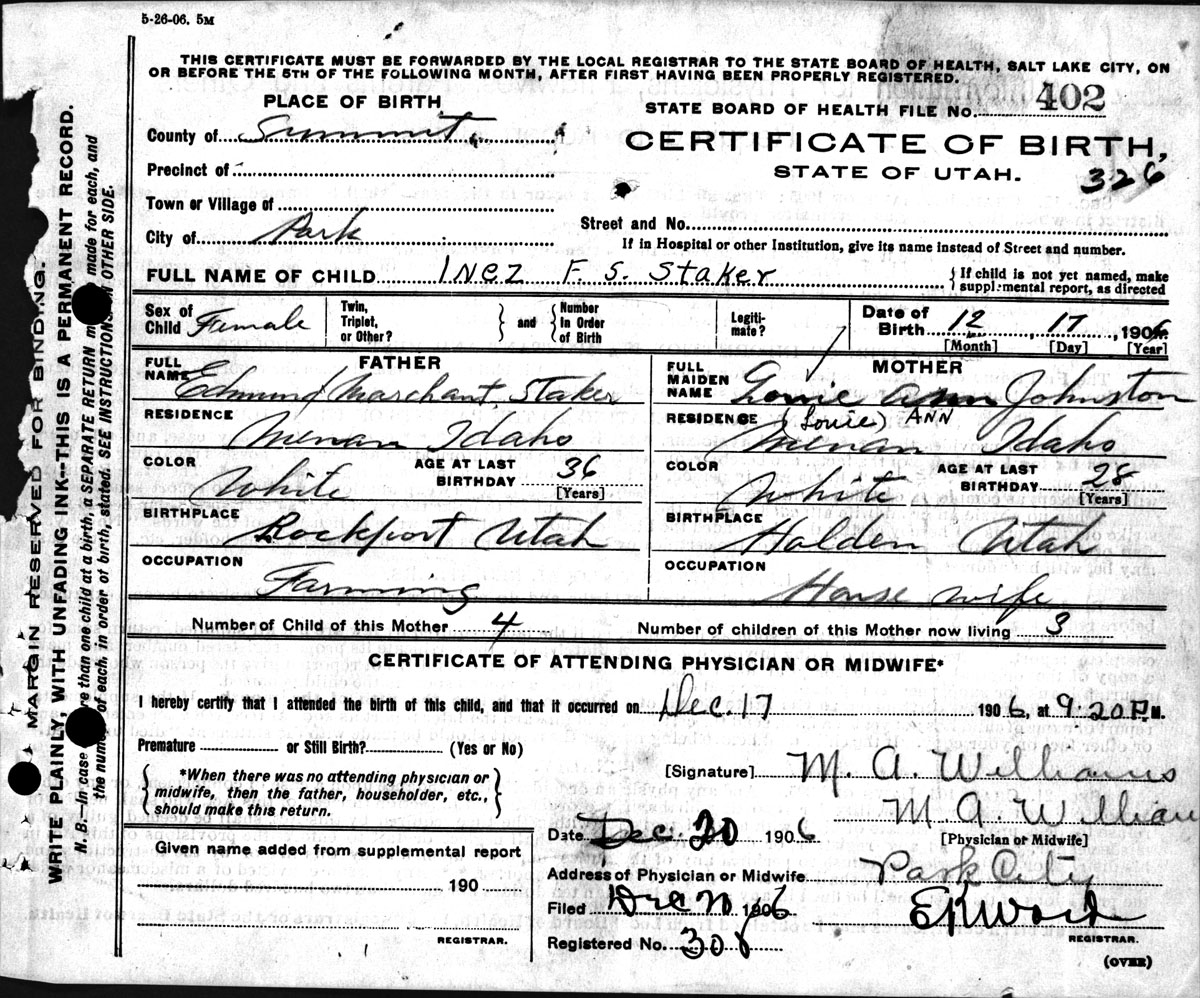 5-26-06. 5M
THIS CERTIFICATE MUST BE FORWARDED BY THE LOCAL REGISTRAR TO THE STATE BOARD OF HEALTH, SALT LAKE CITY, ON
OR BEFORE THE 5TH OF THE FOLLOWING MONTH, AFTER FIRST HAVING BEEN PROPERLY REGISTERED.
PLACE OF BIRTH
STATE BOARD OF HEALTH FILE No. 402
County of Summit
CERTIFICATE OF BIRTH,
Precinct of
STATE OF UTAH.
326
Town or Village of
Street and No.
City of Park
If in Hospital or other Institution, give its name instead of Street and number.
FULL NAME OF CHILD Inez F. S. Staker
{If child is not yet named, make
supplemental report, as directed
Sex of Child Female
Twin, Triplet, or Other?
} and {
Number In Order of Birth
Legiti-mate?
Date of Birth 12 17, 1906
[Month] [Day] [Year]
FATHER
FULL NAME Edmund Marchant Staker
RESIDENCE Menan Idaho
COLOR White AGE AT LAST BIRTHDAY 36 [Years]
BIRTHPLACE Rockport Utah
OCCUPATION Farming
MOTHER
FULL MAIDEN NAME Louie Ann Johnston
(Louie) ANN
RESIDENCE Menan Idaho
COLOR White AGE AT LAST BIRTHDAY 28 [Years]
BIRTHPLACE Holden Utah
OCCUPATION House wife
Number of Child of this Mother 4 Number of children of this Mother now living 3
CERTIFICATE OF ATTENDING PHYSICIAN OR MIDWIFE*
I hereby certify that I attended the birth of this child, and that it occurred on Dec. 17 1906, at 9.20 P.M.
Premature or Still Birth? (Yes or No)
{*When there was no attending physician or
midwife, then the father, householder, etc.,
should make this return.}
[Signature] M. A. Williams
M A. William
Date Dec. 20 1906
[Physician or Midwife]
Given name added from supplemental report
190
REGISTRAR.
Address of Physician or Midwife Park City
Filed Dec 20 1906
REGISTRAR.
Registered No. 308
(OVER)
MARGIN RESERVED FOR BINDING.
WRITE PLAINLY, WITH UNFADING INK--THIS IS A PERMANENT RECORD.
N. B.--In case re than one child at a birth, a SEPARATE RETURN m made for each, and
the num of each, in order of birth, stated. SEE INSTRUCTIONS N OTHER SIDE.